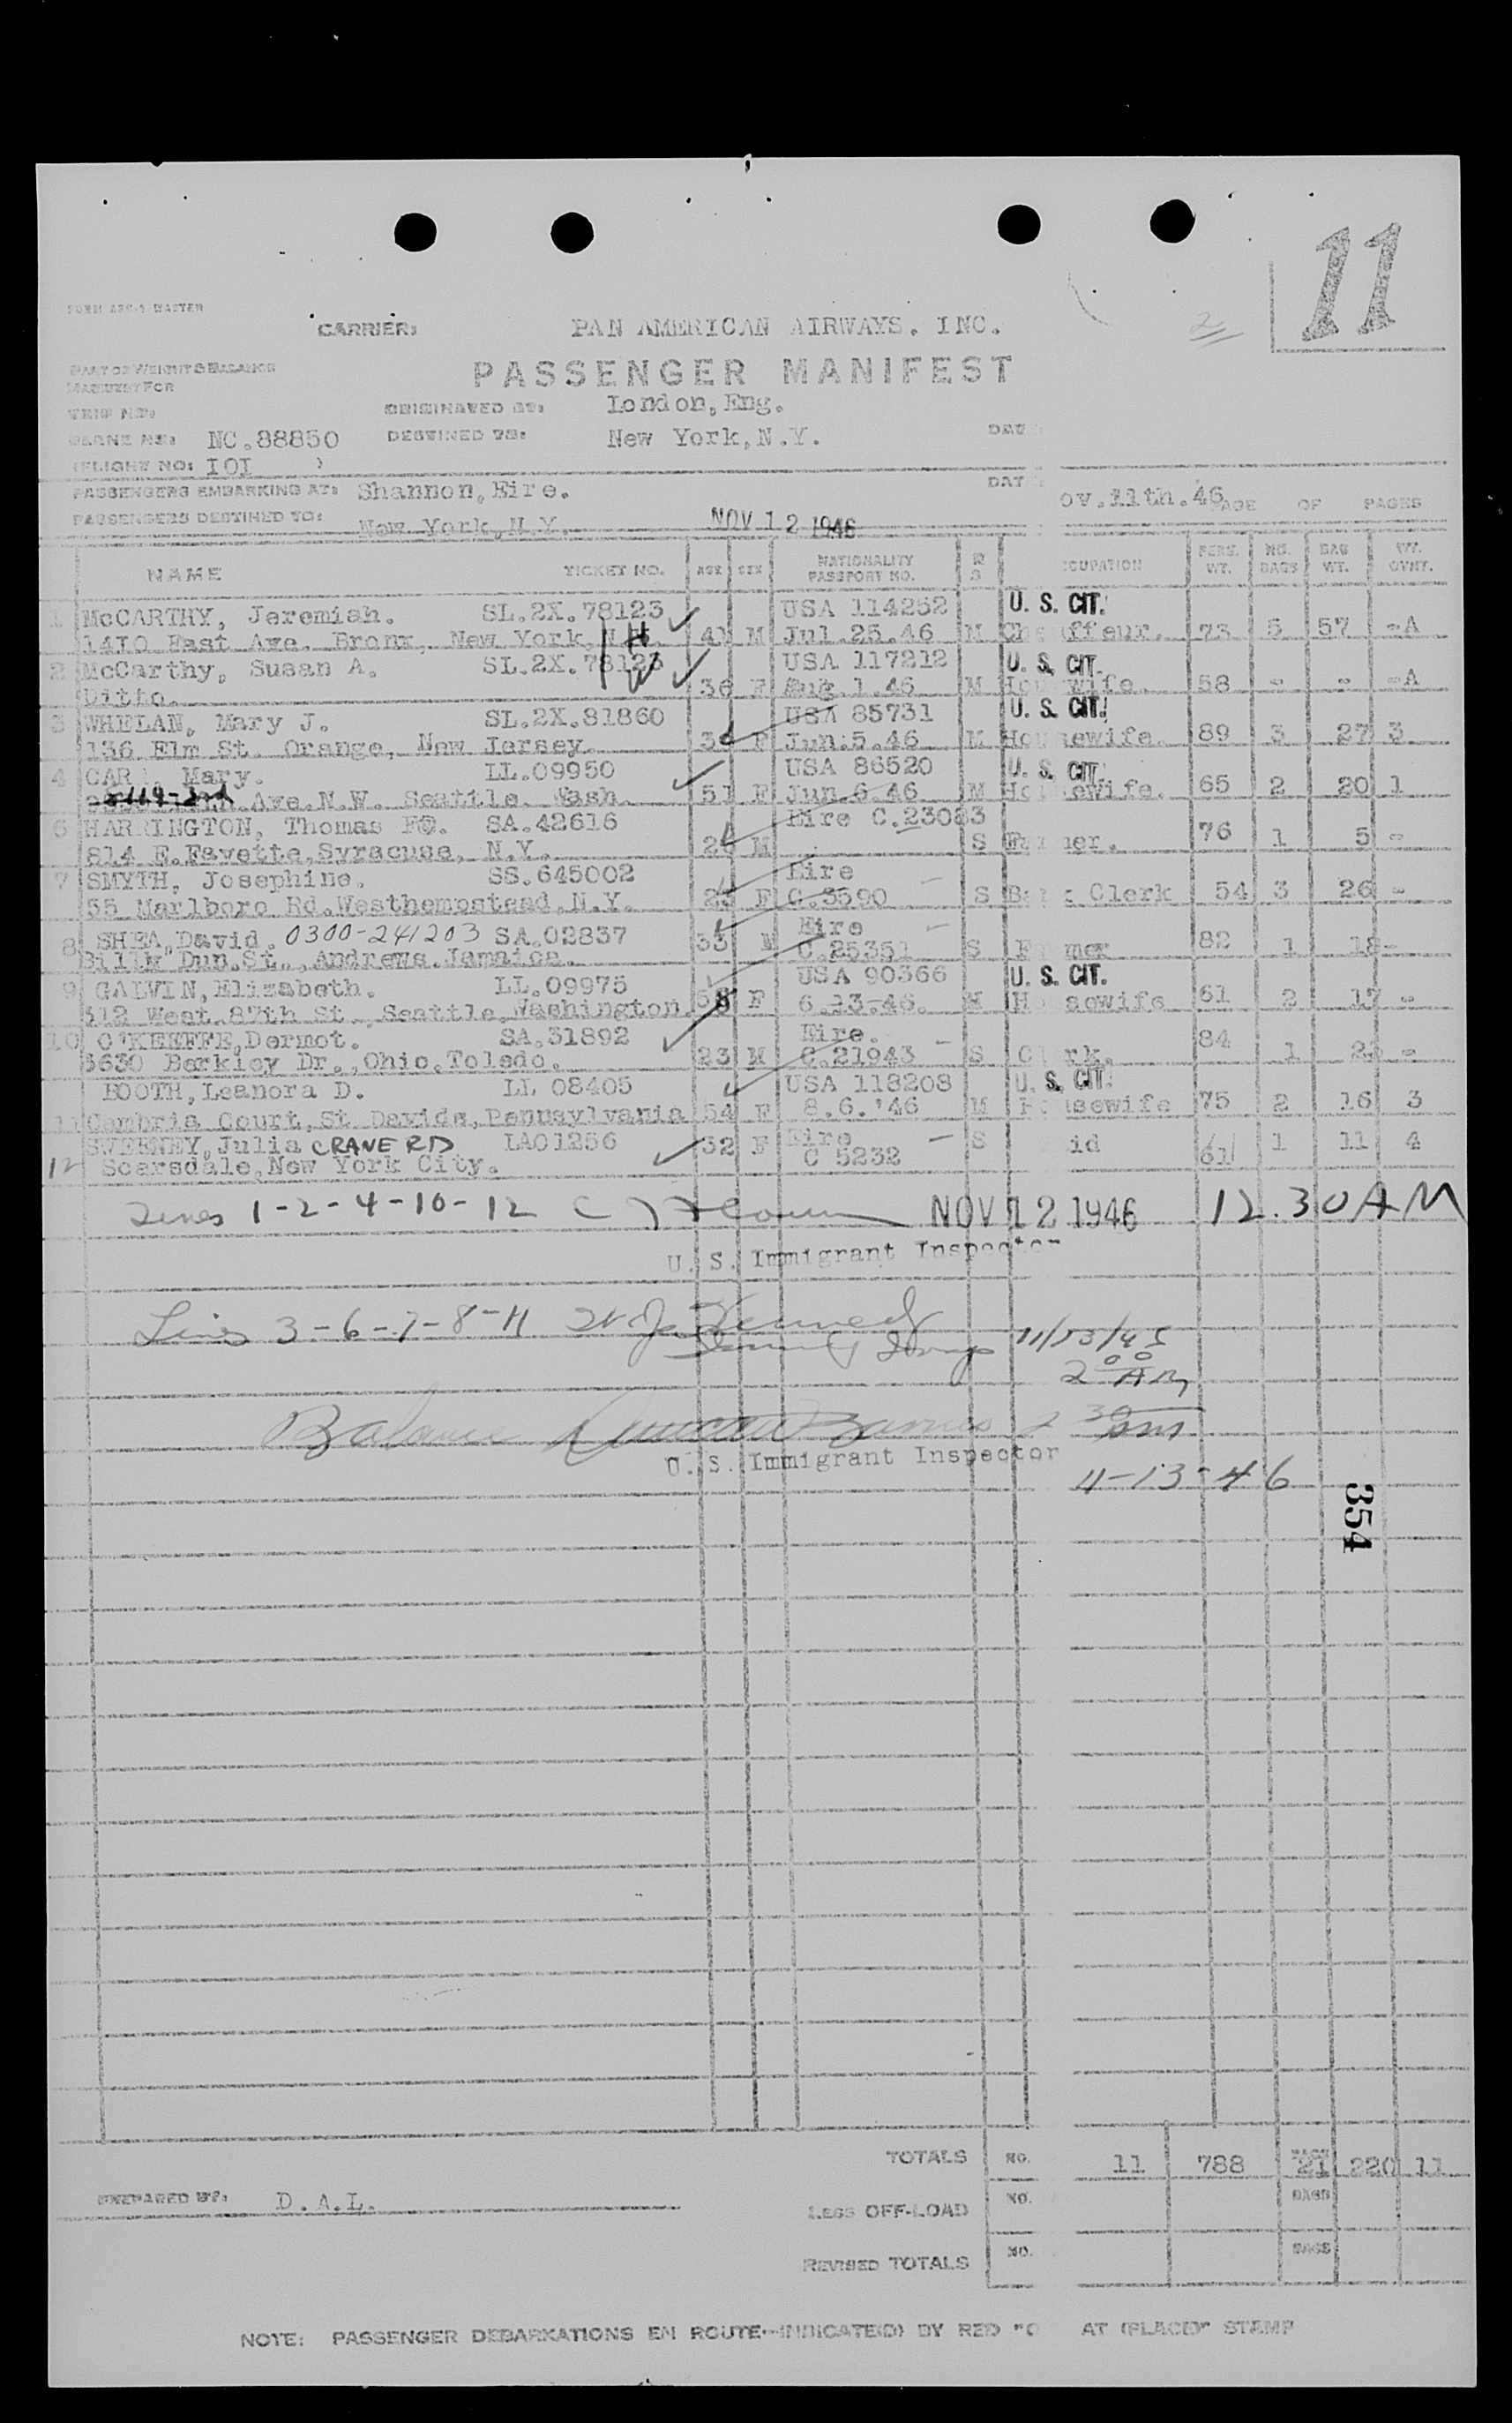 11
2
FORM MASTER
CARRIER: PAN AMERICAN AIRWAYS, INC.
PART OF WEIGHT & BALANCE
MANIFEST FOR
PASSENGER MANIFEST
TRIP No: ORIGINATED AT: London, Eng.
PLANE No: NC.88850 DESTINED TO: New York, N.Y.
(FLIGHT NO: IOI )
PASSENGERS EMBARKING AT: Shannon, Eire. DAT ov.11th.46 PAGE OF PAGES
PASSENGERS DESTINED TO: New York, N.Y. NOV 12 1946
NAME TICKET NO. AGE SEX NATIONALITY PASSPORT NO. M S CUPATION PERS. WT. NO. BAGS BAG WT. WT. OVHT.
1 McCARTHY, Jeremiah. SL.2X.78123 USA 114252 U. S. CIT.
14I0 East Ave. Bronx, New York, M Jul.25.46 M Ch ffeur. 73 5 57 -A
2 McCarthy, Susan A. SL.2X.78123 USA 117212 U. S. CIT.
Ditto. 36 F Aug.1.46 M Ho wife. 58 - - -A
3 WHELAN, Mary J. SL.2X.81860 USA 85731 U. S. CIT.
136 Elm St. Orange, New Jersey. F Jun.5.46 M Ho sewife. 89 3 27 3
4 CAR , Mary. LL.09950 USA 86520 U. S. CIT.
Ave.N.W. Seattle. Wash. 51 F Jun.6.46 M Ho ewife. 65 2 20 1
6 HARRINGTON, Thomas F. SA.42616 Eire C.23083
814 E.Fayette,Syracuse, N.Y. M S Fa mer. 76 1 5 -
7 SMYTH, Josephine. SS.645002 Eire
55 Marlboro Rd.Westhempstead,N.Y. F C.3590 S Ba Clerk 54 3 26 -
8 SHEA,David. 0300-241203 SA.02837 33 M Eire
Billy Dun.St., Andrews.Jamaica. C.25351 S F mer 82 1 18-
9 GALVIN,Elizabeth. LL.09975 USA 90366 U. S. CIT.
512 West.87th St. Seattle,Washington. 58 F 6.13-46. M H sewife 61 2 17 -
10 O'KEEFFE,Dermot. SA.31892 Eire.
3630 Berkley Dr.,Ohio.Toledo. 23 M C.21943 S Cl rk. 84 1 -
BOOTH, Leanora D. LL 08405 USA 118208 U. S. CIT.
11 Cambria Court,St Davids,Pennsylvania 54 F 8.6.'46 M H usewife 75 2 16 3
SWEENEY,Julia CRANE RD LA01256 32 F Eire S id 61 1 11 4
12 Scarsdale,New York City. C 5232
Lines 1-2-4-10-12 NOV 12 1946 12.30 AM
U. S. Immigrant Inspector
Lines 3-6-7-8-11 Kennedy
2 00 AM
Balance Barnes 2 30 am
U. S. Immigrant Inspector
11-13-46
354
TOTALS NO. 11 788 BAGS 21 220 11
PREPARED BY: D.A.L.
LESS OFF-LOAD NO. BAGS
REVISED TOTALS NO. BAGS
NOTE: PASSENGER DEBARKATIONS EN ROUTE-INDICATE(D) BY RED "O AT (PLACE)" STAMP